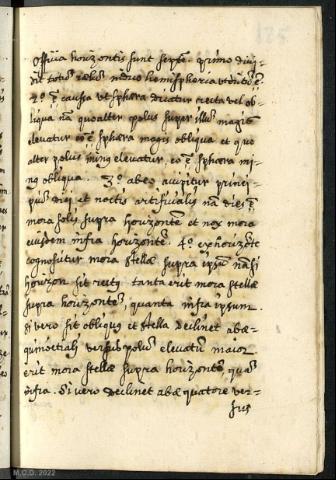 Officia horizontis sunt septē. primo divi-
dit totū cælum in duo hemisphæria
2.º ē causa ut sphæra dicatur recta vel ob-
liqua nā quo alter polus super illū magis
elevatur eo ē sphæra magis obliqua et quo
alter polus minq elevatur eo ē sphæra mi-
nq obliqua. 3.º ab eo accipitur princi-
pius diei et noctis artificialis nā dies ē
mora solis supra horizontē et nox mora
eiusdem infra horizontē. 4.º ex horizōte
cognoscitur mora stellæ supra ipsum nā si
horizon sit rectq tanta erit mora stellæ
supra horizontē, quanta infra ipsum.
si vero sit obliquq et stella declinet ab æ-
quinoctiali versus polū elevatū maior
erit mora stellæ supra horizontē quā
infra. Si vero declinet ab æquatore ver-
sus
M.C.D. 2022